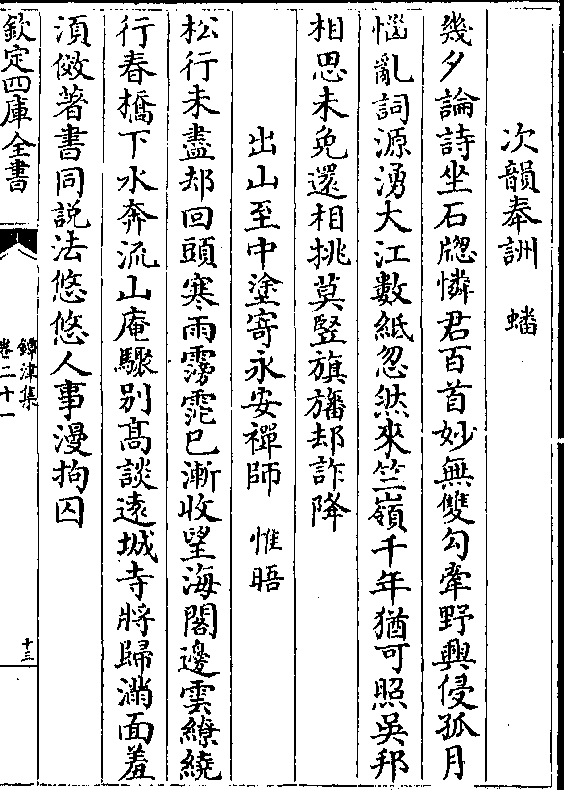 次韻奉詶　蟠
幾夕論詩坐石牎憐君百首妙無雙勾牽野興侵孤月
惱亂詞源湧大江數紙忽然來竺嶺千年猶可照吳邦
相思未免還相挑莫竪旗旛却詐降
出山至中塗寄永安禪師　惟晤
松行未盡却回頭寒雨霶霮已漸收望海閣邊雲繚繞
行春橋下水奔流山庵驟別髙談遠城寺將歸滿面羞
湏傚著書同説法悠悠人事漫拘囚
欽定四庫全書
鐔津集
卷二十一
十三